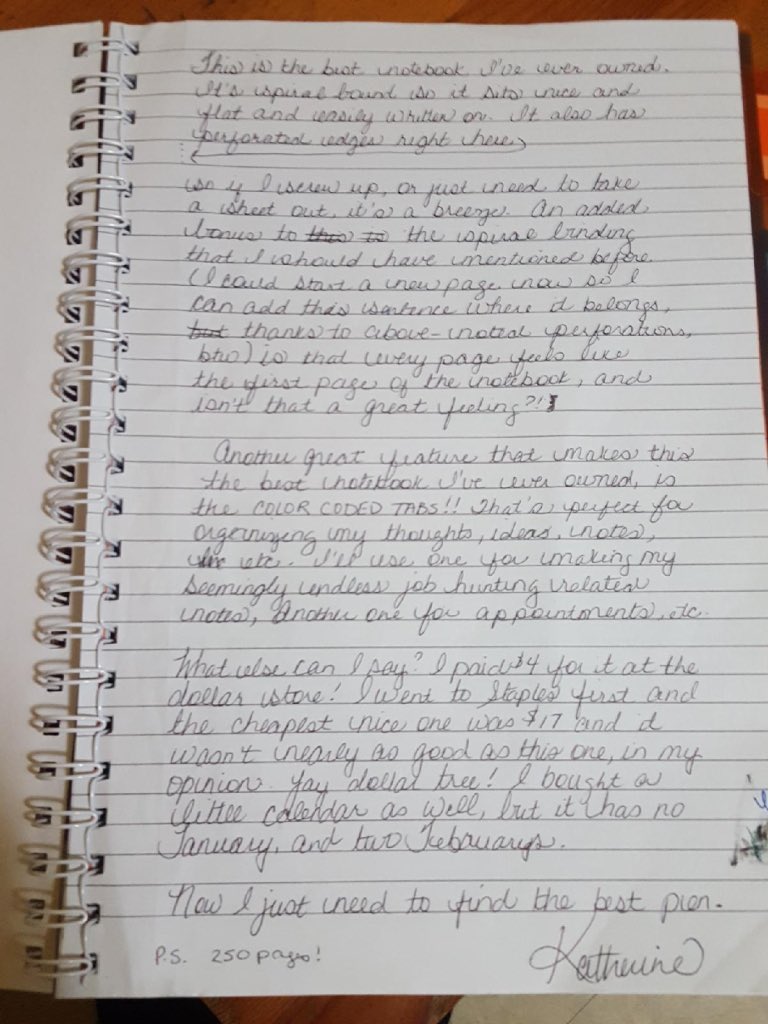 This is the best notebook I've ever owned.
It's spiral bound so it sits nice and
flat and easily written on. It also has
perforated edges right here
so if I screw up, or just need to take
a sheet out, it's a breeze. An added
bonus to this to the spiral binding
that I should have mentioned before
(I could start a new page now so I
can add this sentence where it belongs,
but thanks to above-noted perforations,
btw) is that every page feels like
the first page of the notebook, and
isn't that a great feeling?!
Another great feature that makes this
the best notebook I've ever owned, is
the COLOR CODED TABS!! That's perfect for
organizing my thoughts, ideas, notes,
etc. I'll use one for making my
seemingly endless job hunting related
notes, another one for appointments, etc.
What else can I say? I paid $4 for it at the
dollar store! I went to Staples first and
the cheapest nice one was $17 and it
wasn't nearly as good as this one, in my
opinion. Yay dollar tree! I bought a
little calendar as well, but it has no
January, and two Februarys.
Now I just need to find the best pen.
P.S. 250 pages! Katherine